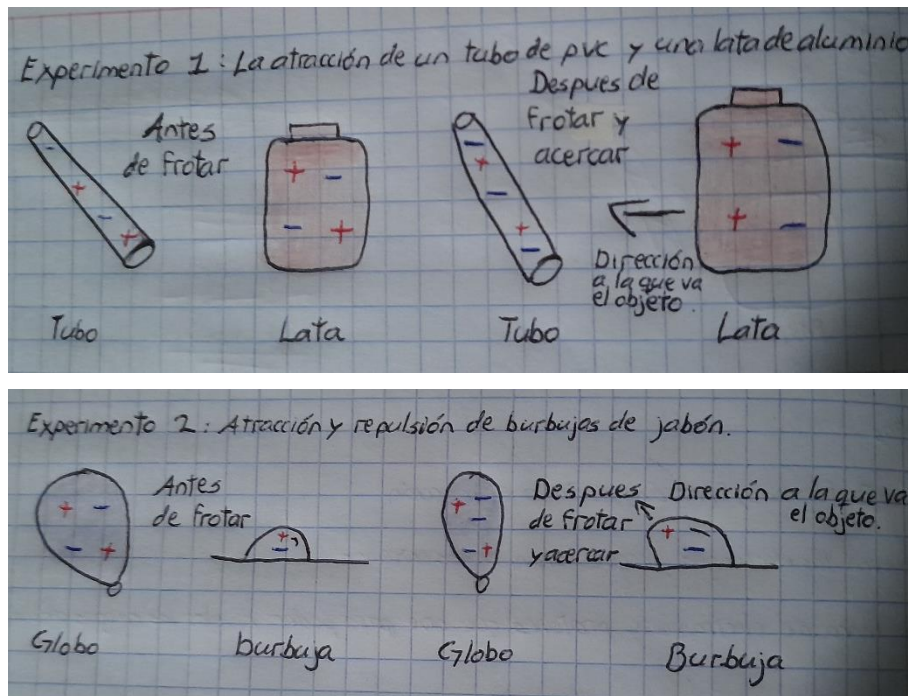 Experimento 1: La atracción de un tubo de pvc y una lata de aluminio
Antes
de frotar
Despues de
frotar y
acercar
Dirección
a la que va
el objeto.
Tubo
Lata
Tubo
Lata
Experimento 2: Atracción y repulsión de burbujas de jabón.
Antes
de frotar
Despues
de frotar
y acercar
Dirección a la que va
el objeto.
Globo
burbuja
Globo
Burbuja